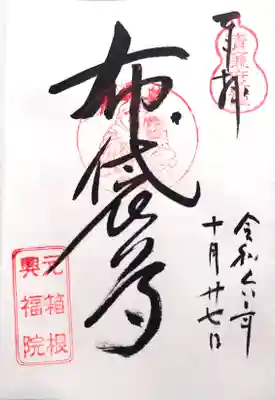 奉拝
布袋尊
令和六年
十月廿七日
元箱根
興福院